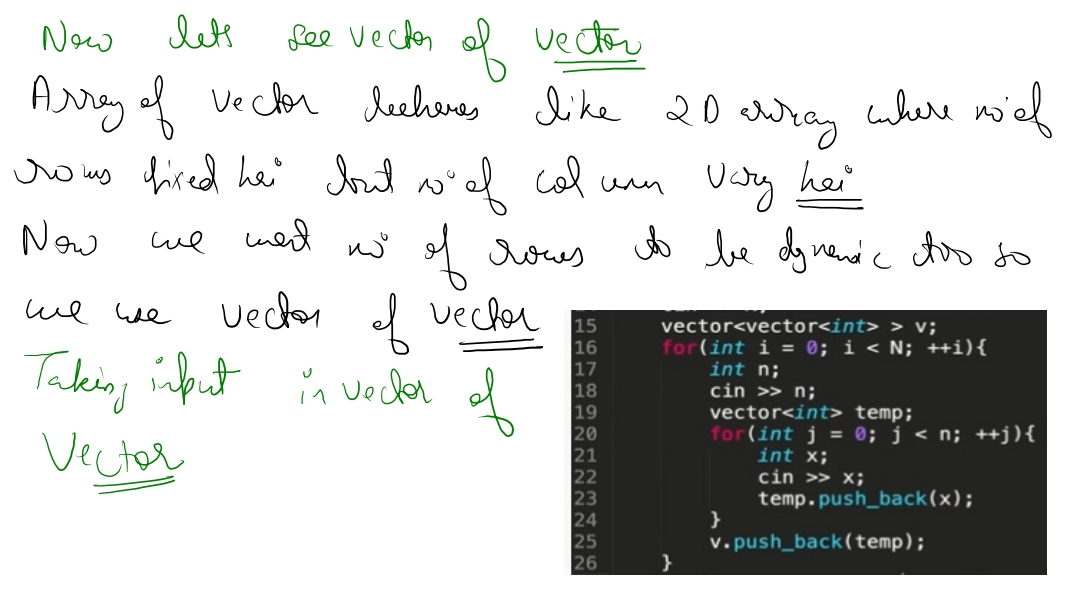 Now lets see vector of vector
Array of vector behaves like 2D array where no of
rows fixed hai but no of column vary hai
Now we want no of rows to be dynamic too so
we use vector of vector
Taking input in vector of
Vector
15 vector<vector<int> > v;
16 for(int i = 0; i < N; ++i){
17 int n;
18 cin >> n;
19 vector<int> temp;
20 for(int j = 0; j < n; ++j){
21 int x;
22 cin >> x;
23 temp.push_back(x);
24 }
25 v.push_back(temp);
26 }